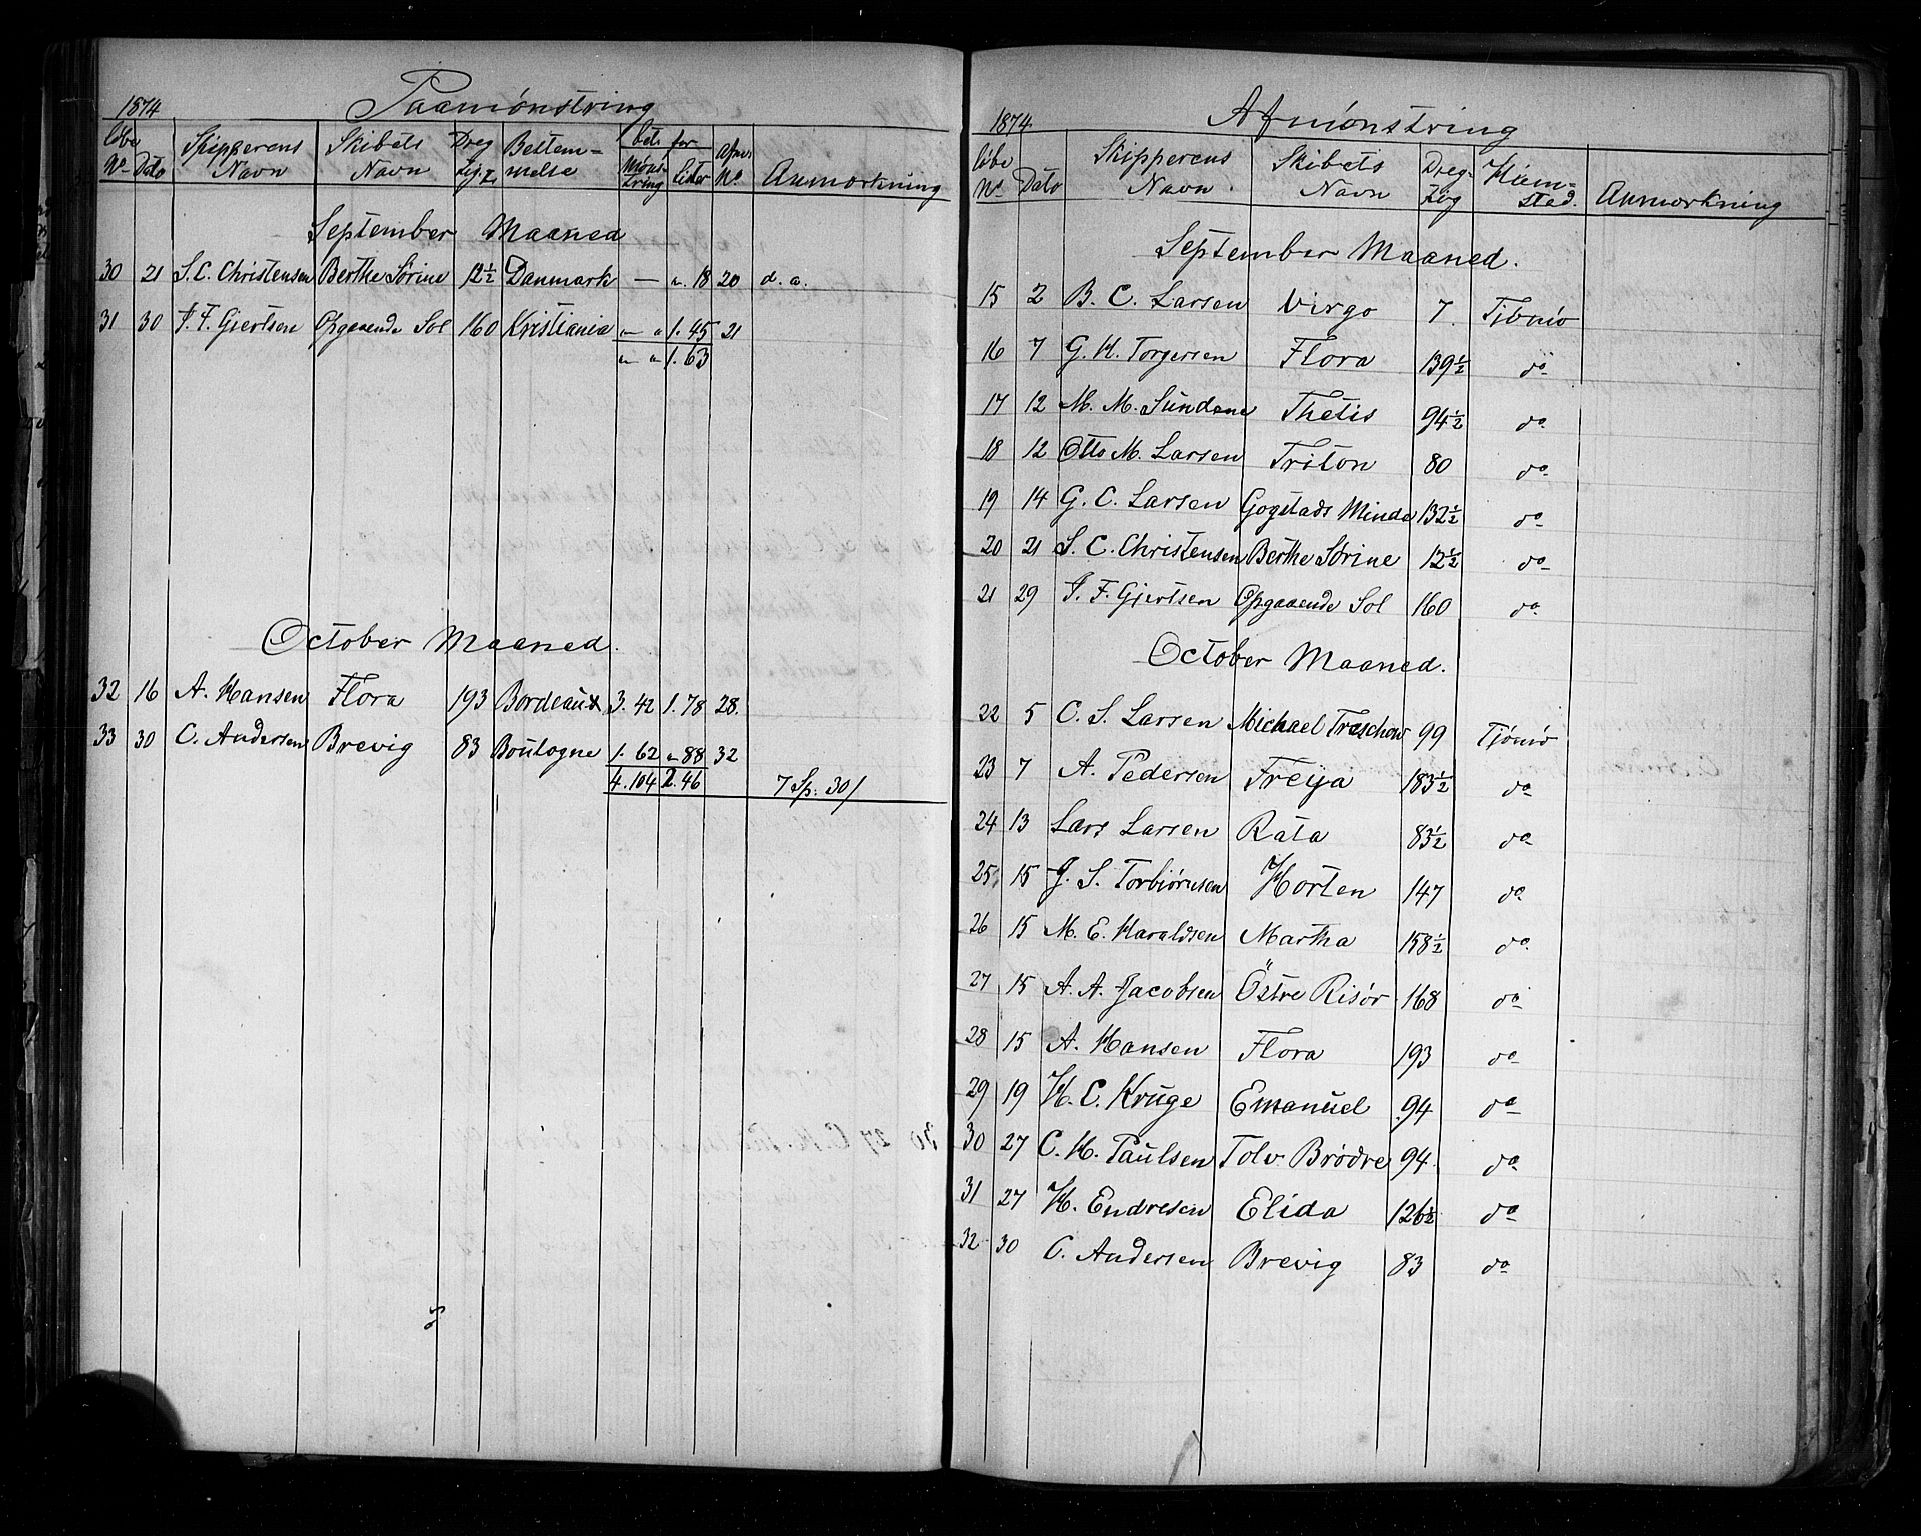 1874 Paamønstring
Løbe No. Dato Skipperens Navn Skibets Navn Dreg- tig. Bestem- melse bet. for Møns- tring Lister Afm. No. Anmærkning
September Maaned
30 21 S. C. Christensen Berthe Sørine 12½ Danmark — " 18 20 d. a.
31 30 J. F. Gjertsen Opgaaende Sol 160 Kristiania " " 1. 45 21
" " 1. 63
October Maaned.
32 16 A. Hansen Flora 193 Bordeaux 3. 42 1. 78 28.
33 30 C. Andersen Brevig 83 Boulogne 1. 62 " 88 32
4. 104 2. 46 7 Sp. 30/
1874 Afmønstring
Løbe No. Dato Skipperens Navn. Skibets Navn Dreg- tig Hiem- sted. Anmærkning
September Maaned.
15 2 B. C. Larsen Virgo 7. Tjømø
16 7 G. H. Torgersen Flora 139½ do
17 12 M. M. Sundene Thetis 94½ do
18 12 Otto M. Larsen Triton 80 do
19 14 G. C. Larsen Gogstads Minde 132½ do
20 21 S. C. Christensen Berthe Sørine 12½ do
21 29 J. F. Gjertsen Opgaaende Sol 160 do
October Maaned.
22 5 C. S. Larsen Michael Treschow 99 Tjømø
23 7 A. Pedersen Freija 183½ do
24 13 Lars Larsen Rata 83½ do
25 15 J. S. Torbiørnsen Horten 147 do
26 15 M. E. Haraldsen Martha 158½ do
27 15 A. A. Jacobsen Östre Risør 168 do
28 15 A. Hansen Flora 193 do
29 19 H. C. Kruge Emanuel 94 do
30 27 C. H. Paulsen Tolv Brødre 94 do
31 27 H. Endresen Elida 126½ do
32 30 C. Andersen Brevig 83 do